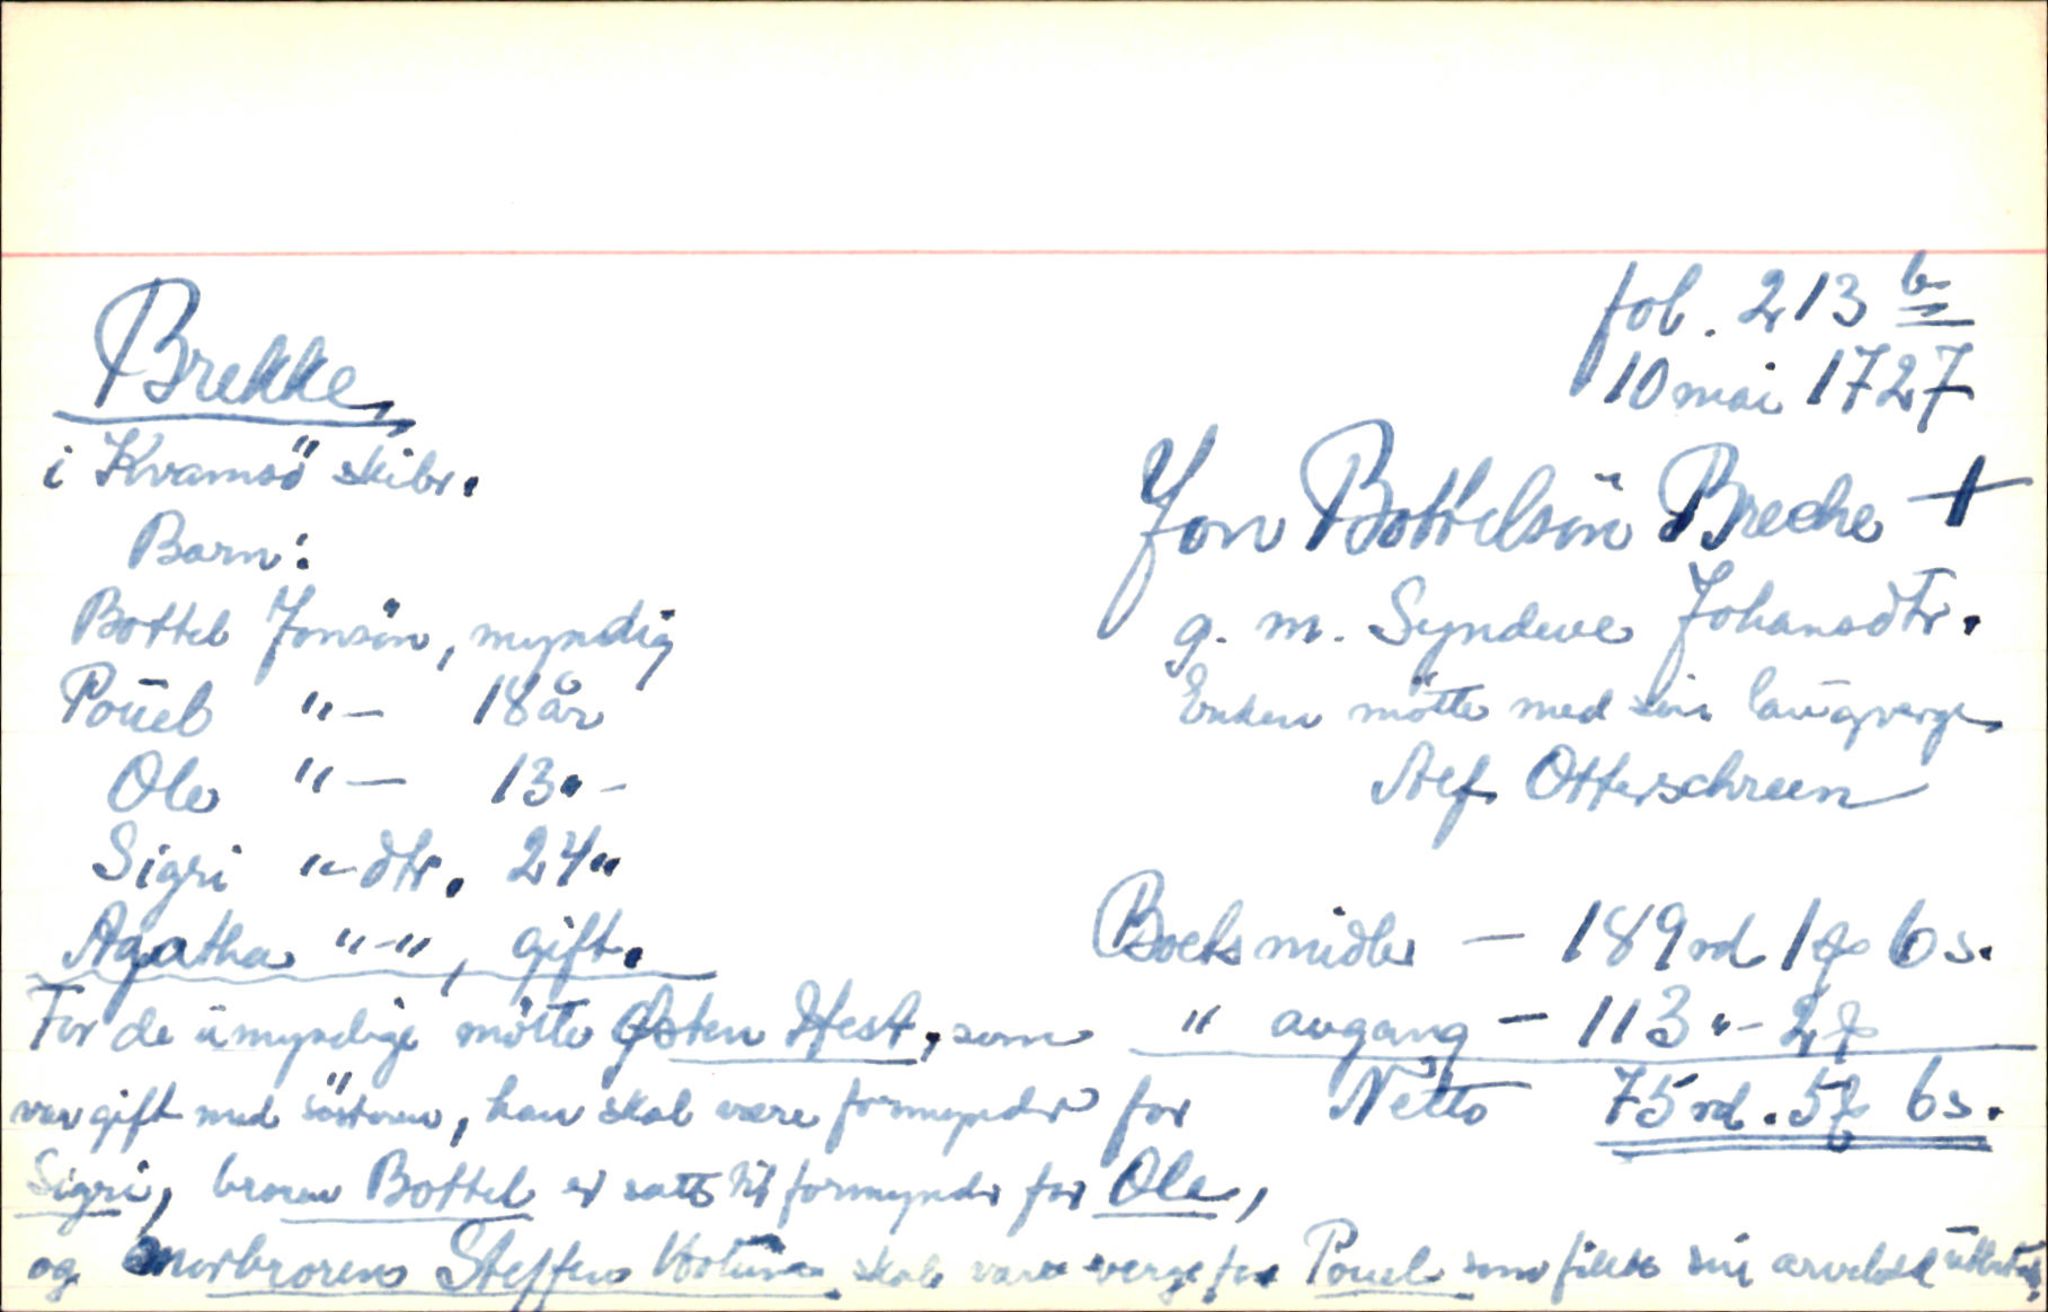 fol. 213 b
10 mai 1727
Brekke,
i Kvamsö skibr.
Barn:
Bottel Jonsön, myndig
Pouel "— 18 år
Ole "— 13 "—
Sigri "—dtr. 24 "
Agatha "—", gift.
Jon Bottelsön Breche +
g. m. Syndeve Johansdtr.
Enken mötte med sin laugverge
Alf Otterschreen
Boets midler — 189 rd 1 ꝑ 6 s.
" avgang — 113 "— 2 ꝑ
Netto 75 rd. 5 ꝑ 6 s.
For de umyndige mötte Østen Hest, som
var gift med sösteren, han skal være formynder for
Sigri, broren Bottel er satt til formynder for Ole,
og morbroren Steffen skal være verge for Pouel som fikk sin arvelodd